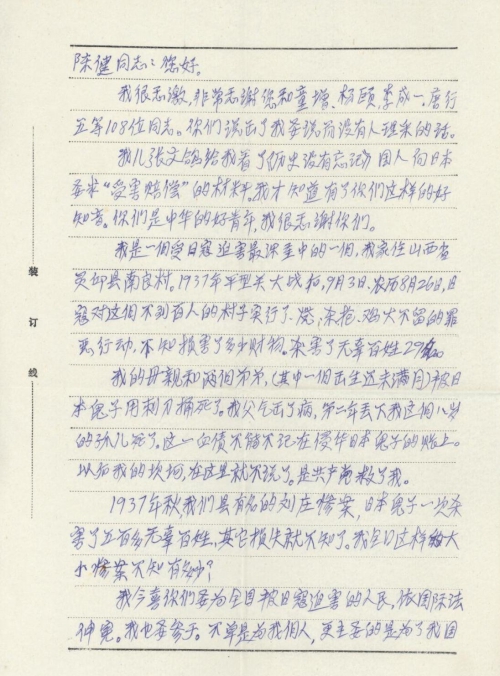 陈健同志：您好。
我很感激，非常感谢您和童增、杨颐、李成一、唐行
五等108位同志。你们说出了我要说而没有人理采的话。
我儿张文鸽给我看了《历史没有忘记》国人向日本
要求“受害赔偿”的材料。我才知道有了你们这样的好
知音。你们是中华的好青年，我很感谢你们。
我是一個受日寇迫害最深重中的一個，我家住山西省
灵邱县南良村。1937年平型关大战后，9月3日，农历8月26日，日
寇对这個不到百人的村子实行了、烧、杀抢、鸡犬不留的罪
恶行动，不知损害了多少财物。杀害了无辜百姓29名。
我的母親和两個弟弟，(其中一個出生还未满月)被日
本鬼子用刺刀捅死了。我父气出了病，第二年丢下我这個八岁
的孤儿死了。这一血债不能不记在侵华日本鬼子的账上。
以后我的坎坷，在这里就不说了。是共产党救了我。
1937年秋我们县有名的刘庄惨案，日本鬼子一次杀
害了五百多无辜百姓，其它损失就不知了。我全国这样的大
小惨案不知有多少？
我今喜你们要为全国被日寇迫害的人民，依国际法
伸冤。我也要参于。不单是为我個人，更主要的是为了我国
装
订
线